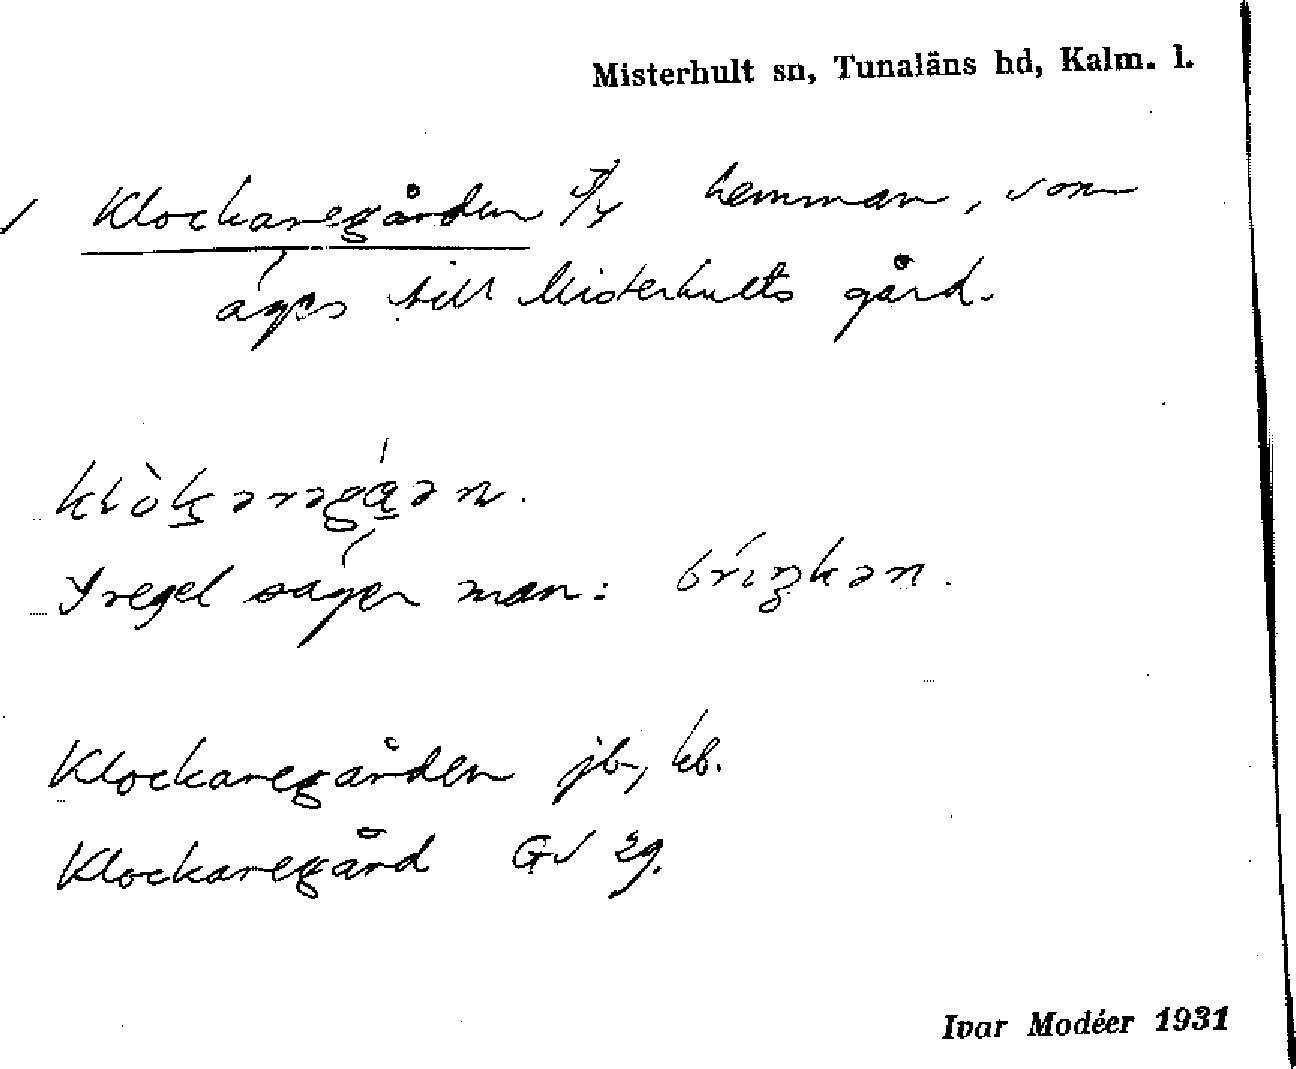 Misterhult sn, Tunaläns hd, Kalm. l.
Klockaregården 3/4 hemman, som
äges till Misterhults gård.
klòkarəgá̱ən.
I regel säger man: bríŋkən.
Klockaregården jb, kb.
Klockaregård GV 29.
Ivar Modéer 1931